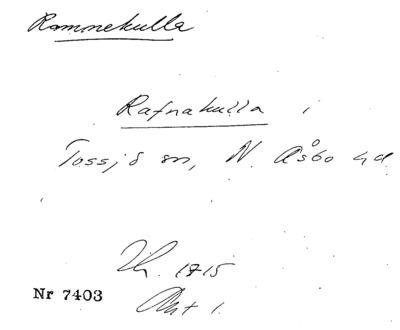 Rammekulla
Rafnakulla i
Tossjö sn, N. Åsbo hd
Jb. 1715
Nr 7403
Avt 1.